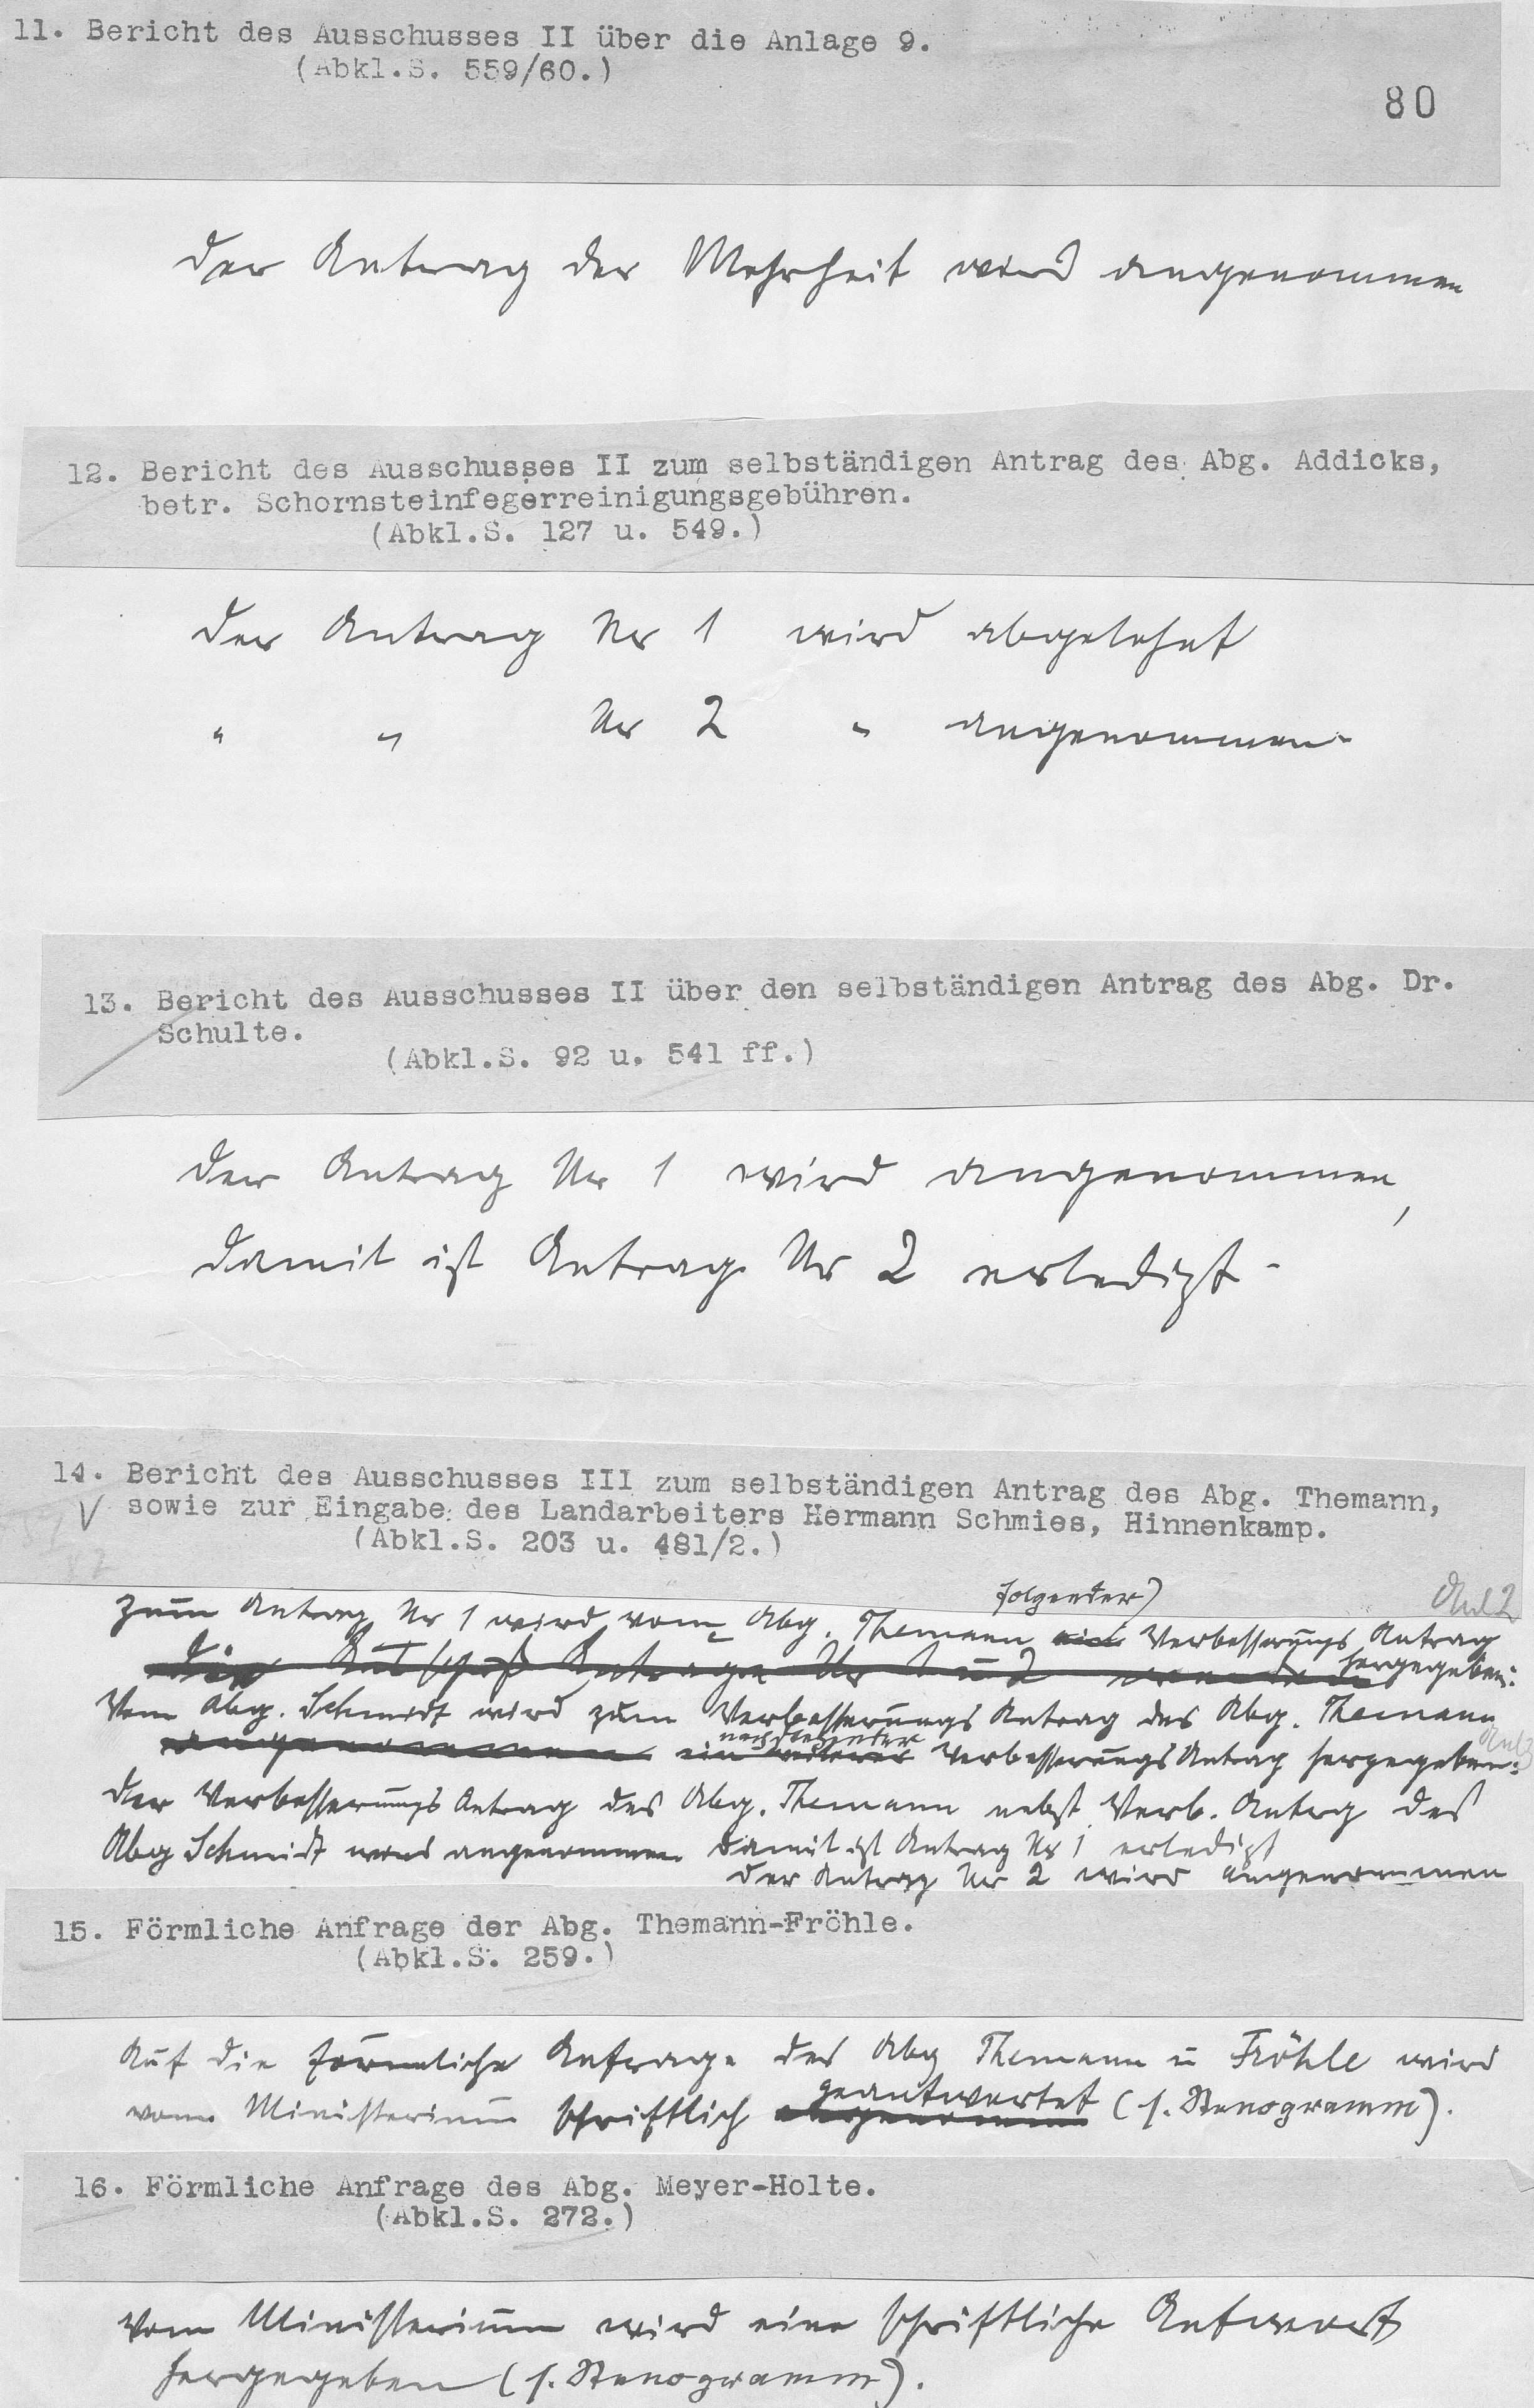 11. Bericht des Ausschusses II über die Anlage 9.
(Abkl.S. 559/60.)
80
Der Antrag der Mehrheit wird angenommen
12. Bericht des Ausschusses II zum selbständigen Antrag des Abg. Addicks,
betr. Schornsteinfegerreinigungsgebühren.
(Abkl.S. 127 u. 549.)
Der Antrag Nr 1 wird abgelehnt
" " Nr 2 " angenommen.
13. Bericht des Ausschusses II über den selbständigen Antrag des Abg. Dr.
Schulte.
(Abkl.S. 92 u. 541 ff.)
Der Antrag Nr 1 wird angenommen,
damit ist Antrag Nr 2 erledigt.
14. Bericht des Ausschusses III zum selbständigen Antrag des Abg. Themann,
V sowie zur Eingabe des Landarbeiters Hermann Schmies, Hinnenkamp.
(Abkl.S. 203 u. 481/2.)
folgender
Anl 2
Zum Antrag Nr 1 wird vom Abg. Themann ein Verbesserungs Antrag
Die Ausschuß Antrage Nr 1 und 2 werden hergegeben:
Vom Abg. Schmidt wird zum Verbesserungs Antrag des Abg. Themann
nachstehender
Anl 3
angenommen ein weiterer Verbesserungs Antrag hergegeben:
Der Verbesserungs Antrag des Abg. Themann nebst Verb. Antrg des
Abg Schmidt wird angenommen damit ist Antrag Nr 1 erledigt
Der Antrag Nr 2 wird angenommen
15. Förmliche Anfrage der Abg. Themann-Fröhle.
(Abkl.S. 259.)
Auf die förmliche Anfrage der Abg Themann u Fröhle wird
geantwortet
vom Ministerium schriftlich (s. Stenogramm).
16. Förmliche Anfrage des Abg. Meyer-Holte.
(Abkl.S. 272.)
Vom Ministerium wird eine schriftliche Antwort
hergegeben (s. Stenogramm).